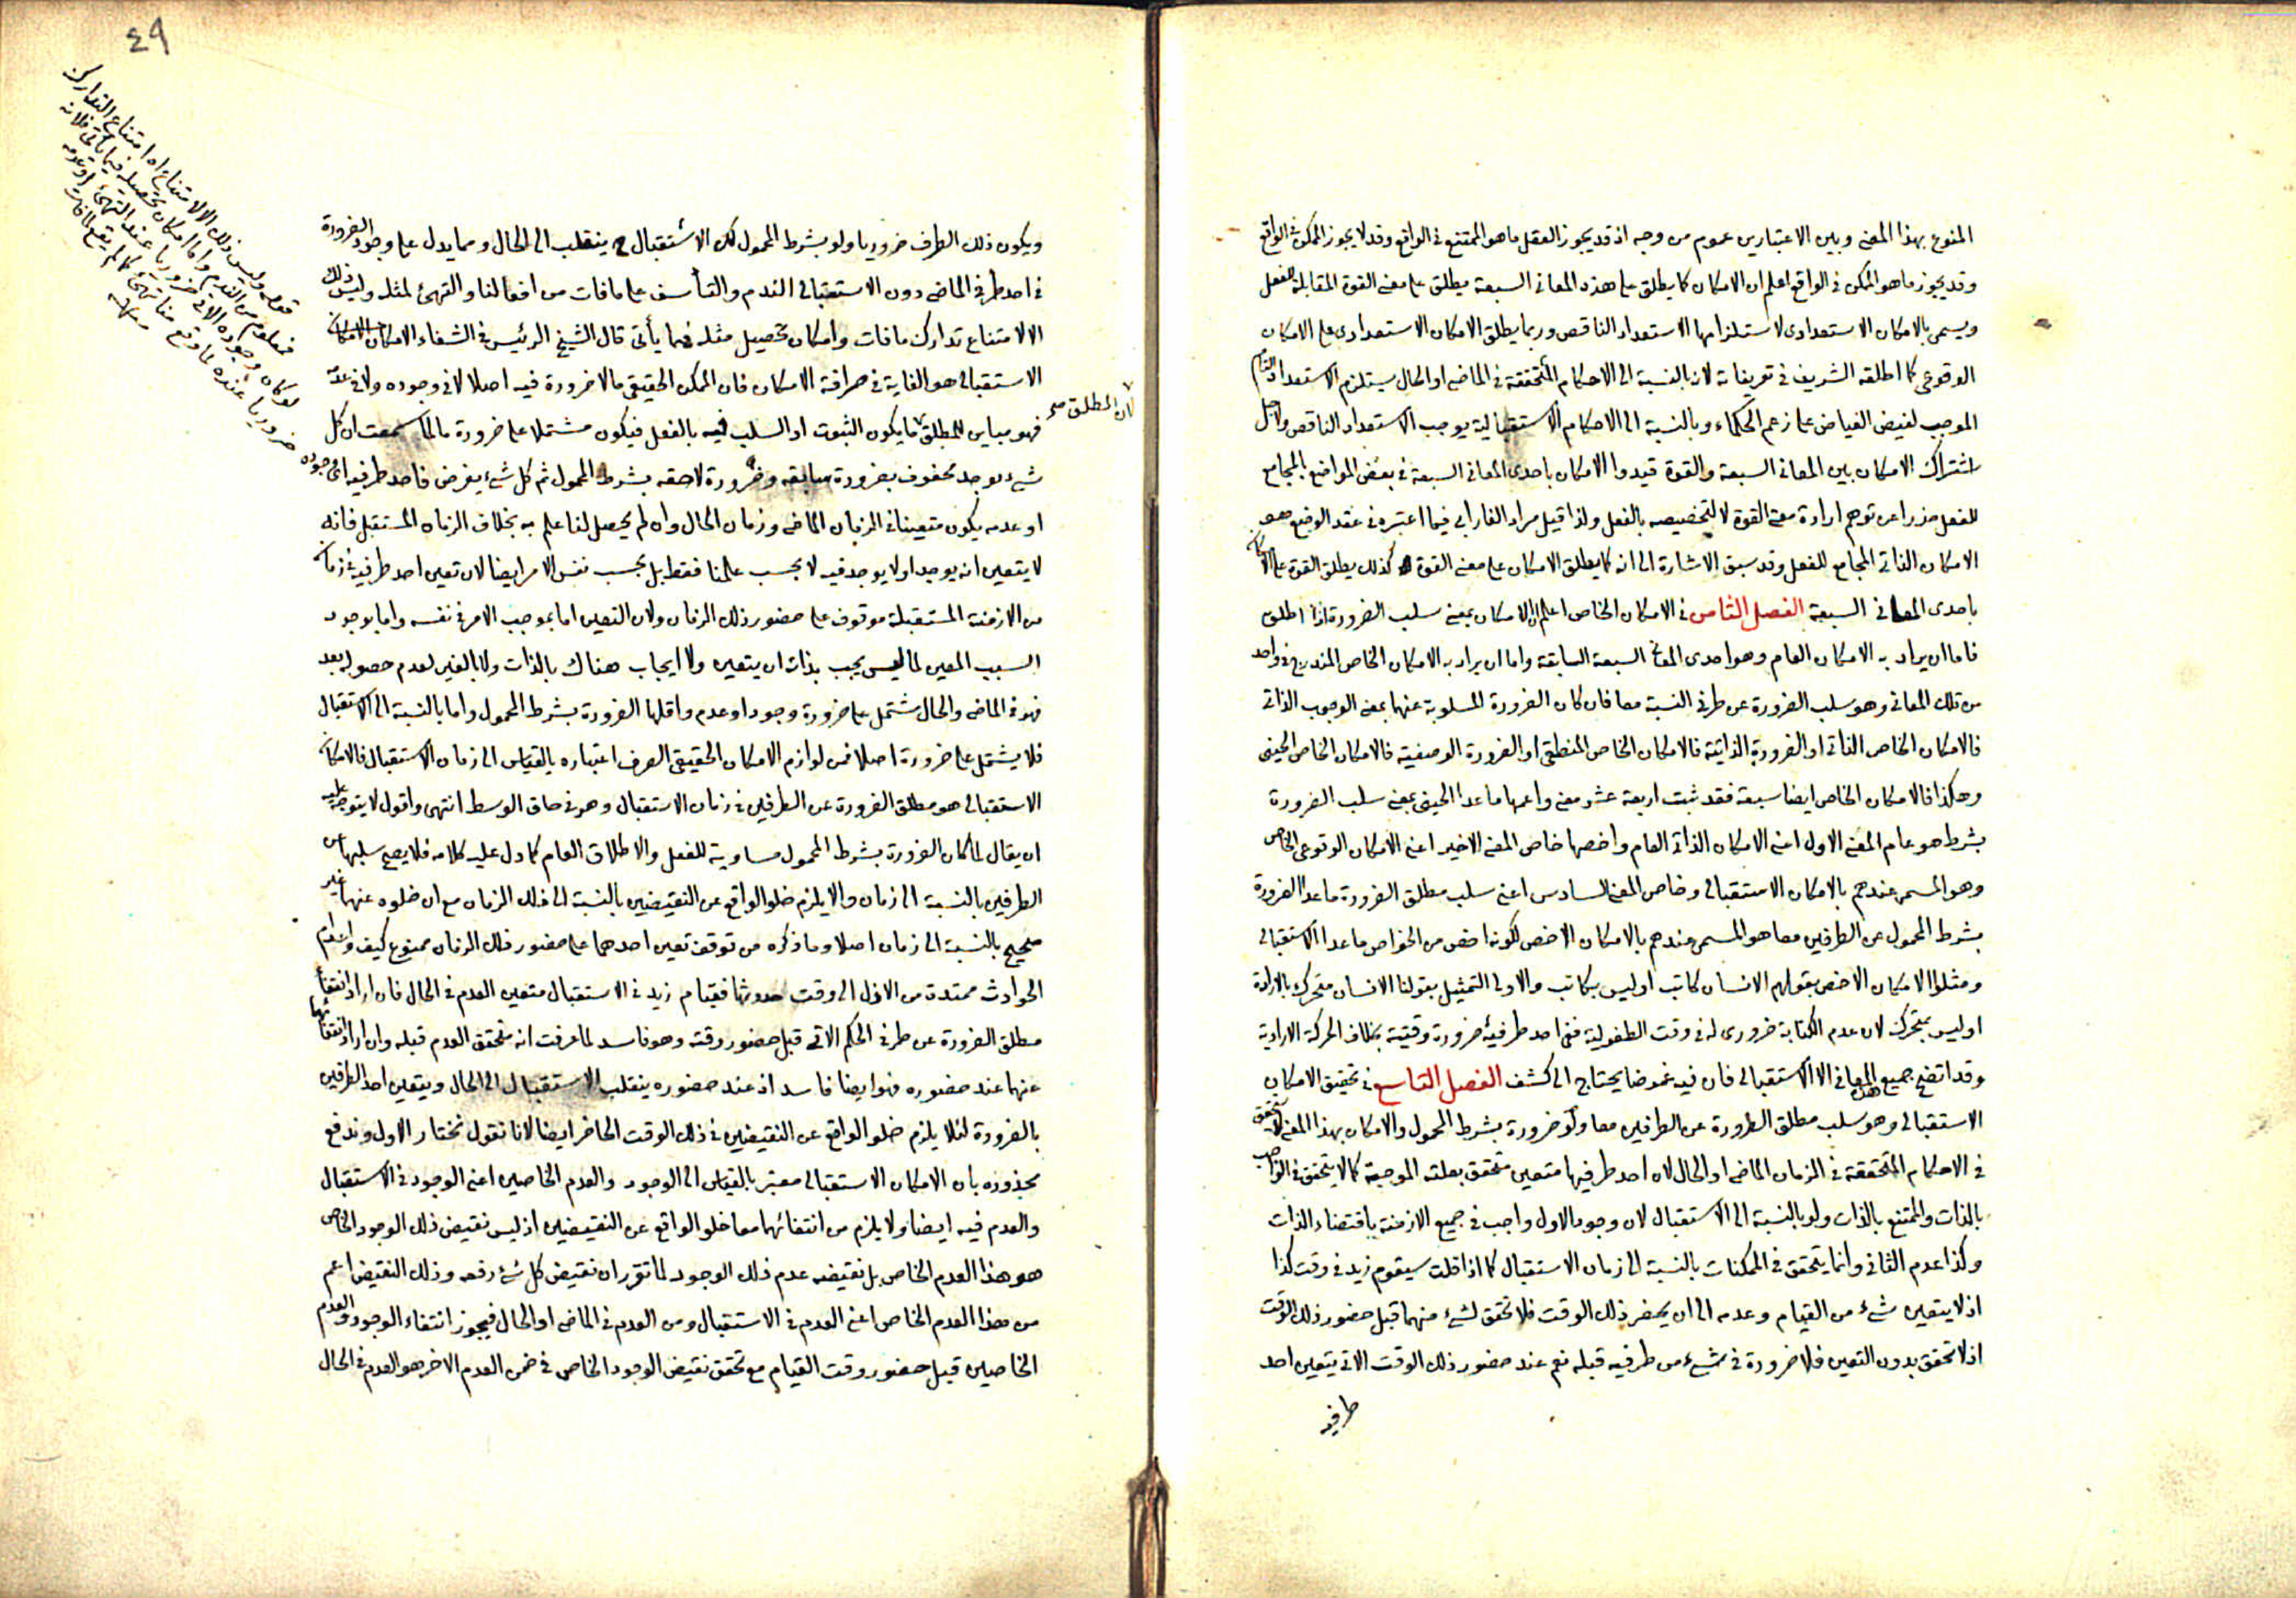 الممنوع بهذا المعنى وبين الاعتبارين عموم من وجه اذ قد يجوز العقل ما هو الممتنع في الواقع وقد لا يجوز الممكن في الواقع
وقد يجوز ما هو الممكن في الواقع اعلم ان الامكان كما يطلق على هذه المعاني السبعة يطلق على معنى القوة المقابلة للفعل
ويسمى بالامكان الاستعدادى لاستلزامها الاستعداد الناقص وربما يطلق الامكان الاستعدادى على الامكان
الوقوعى كما اطلقه الشريف في تعريفاته لان بالنسبة الى الاحكام المتحققة في الماضى او الحال يستلزم الاستعداد التام
الموجب لفيض الفياض على زعم الحكماء وبالنسبة الى الاحكام الاستقبالية يوجب الاستعداد الناقص ولاجل
اشتراك الامكان بين المعانى السبعة والقوة قيدوا الامكان باحدى المعانى السبعة في بعض المواضع بالمجامع
للفعل حذرا عن توهم ارادة معنى القوة لا لتخصيصه بالفعل ولذا قيل مراد الفارابى فيما اعتبره في عقد الوضع هو
الامكان الذاتى المجامع للفعل وقد سبق الاشارة الى انه كما يطلق الامكان على معنى القوة كذلك يطلق القوة على الامكان
باحدى المعانى السبعة الفصل الثامن في الامكان الخاص اعلم ان الامكان بمعنى سلب الضرورة اذا اطلق
فاما ان يراد به الامكان العام وهو احدى المعانى السبعة السابقة واما ان يراد به الامكان الخاص المندرج في واحد
من تلك المعانى وهو سلب الضرورة عن طرفى النسبة معا فان كان الضرورة المسلوبة عنهما بمعنى الوجوب الذاتى
فالامكان الخاص الذاتى او الضرورة الذاتية فالامكان الخاص المنطقى او الضرورة الوصفية فالامكان الخاص الحينى
وهكذا فالامكان الخاص ايضا سبعة فقد ثبت اربعة عشر معنى واعمها ما عدا الحينى بمعنى سلب الضرورة
بشرط هو عام المعنى الاول اعنى الامكان الذاتى العام واخصها خاص المعنى الاخير اعنى الامكان الوقوعى الخاص
وهو المسمى عندهم بالامكان الاستقبالى وخاص المعنى السادس اعنى سلب مطلق الضرورة ما عدا الضرورة
بشرط المحمول عن الطرفين معا هو المسمى عندهم بالامكان الاخص لكونه اخص من الخواص ما عدا الاستقبالى
ومثلوا الامكان الاخص بقولهم الانسان كاتب او ليس بكاتب والاولى التمثيل بقولنا الانسان متحرك بالارادة
او ليس بمتحرك لان عدم الكتابة ضرورى له في وقت الطفولية ففى احد طرفيه ضرورة وقتية بخلاف الحركة الارادية
وقد اتضح جميع هذه المعانى الا الاستقبالى فان فيه غموضا يحتاج الى كشف الفصل التاسع في تحقيق الامكان
الاستقبالى وهو سلب مطلق الضرورة عن الطرفين معا ولو ضرورة بشرط المحمول والامكان بهذا المعنى لا يتحقق
في الاحكام المتحققة في الزمان الماضى او الحال لان احد طرفيها متعين متحقق بعلته الموجبة كما لا يتحقق في الواجب
بالذات والممتنع بالذات ولو بالنسبة الى الاستقبال لان وجود الاول واجب في جميع الازمنة باقتضاء الذات
وكذا عدم الثانى وانما يتحقق في الممكنات بالنسبة الى زمان الاستقبال كما اذا قلت سيقوم زيد في وقت كذا
اذ لا يتعين شئ من القيام وعدمه الى ان يحضر ذلك الوقت فلا تحقق لشئ منهما قبل حضور ذلك الوقت
اذ لا تحقق بدون التعين فلا ضرورة في شئ من طرفيه قبله نعم عند حضور ذلك الوقت الاتى يتعين احد
طرفيه
٤٩
ويكون ذلك الطرف ضروريا ولو بشرط المحمول لكن الاستقبال ح ينقلب الى الحال ومما يدل على وجود الضرورة
في احد طرفى الماضى دون الاستقبالى الندم والتأسف على ما فات من افعالنا والتهيئ لمثله وليس ذلك
الا لامتناع تدارك ما فات وامكان تحصيل مثله فيما يأتى قال الشيخ الرئيس في الشفاء الامكان
الاستقبالى هو الغاية في صرافة الامكان فان الممكن الحقيقى ما لا ضرورة فيه اصلا لا في وجوده ولا في عدمه
فهو مباين للمطلق ما يكون الثبوت او السلب فيه بالفعل فيكون مشتملا على ضرورة ما لما سمعت ان كل
لان المطلق صح
شئ يوجد محفوف بضرورة سابقه وضرورة لاحقه بشرط المحمول ثم كل شئ يفرض فاحد طرفيه اى وجوده
او عدمه يكون متعينا في الزمان الماضى وزمان الحال وان لم يحصل لنا علم به بخلاف الزمان المستقبل فانه
لا يتعين انه يوجد او لا يوجد فيه لا بحسب علمنا فقط بل بحسب نفس الامر ايضا لان تعين احد طرفيه في زمان
من الازمنة المستقبلة موقوف على حضور ذلك الزمان ولان التعين اما بموجب الامر في نفسه واما بوجود
السبب المعين لما ليس يجب بذاته ان يتعين ولا ايجاب هناك بالذات ولا بالغير لعدم حصوله بعد
فهو في الماضى والحال مشتمل على ضرورة وجود او عدم واقلها الضرورة بشرط المحمول واما بالنسبة الى الاستقبال
فلا يشتمل على ضرورة اصلا فمن لوازم الامكان الحقيقى الصرف اعتباره بالقياس الى زمان الاستقبال فالامكان
الاستقبالى هو مطلق الضرورة عن الطرفين في زمان الاستقبال وهو في حاق الوسط انتهى واقول لا يتوجه عليه
ان يقال لما كان الضرورة بشرط المحمول مساوية للفعل والاطلاق العام كما دل عليه كلامه فلا يصح سلبها عن
الطرفين بالنسبة الى زمان والا يلزم خلو الواقع عن النقيضين بالنسبة الى ذلك الزمان مع ان خلوه عنهما غير
صحيح بالنسبة الى زمان اصلا وما ذكره من توقف تعين احدهما على حضور ذلك الزمان ممنوع كيف واعدام
الحوادث ممتدة من الازل الى وقت حدوثها فقيام زيد في الاستقبال متعين العدم في الحال فان اراد انتفاء
مطلق الضرورة عن طرفى الحكم الاتى قبل حضور وقته وهو فاسد لما عرفت انه متحقق العدم قبله وان اراد انتفائها
عنهما عند حضوره فهو ايضا فاسد اذ عند حضوره ينقلب الاستقبال الى الحال ويتعين احد الطرفين
بالضرورة لئلا يلزم خلو الواقع عن النقيضين في ذلك الوقت الحاضر ايضا لانا نقول نختار الاول وندفع
محذوره بان الامكان الاستقبالى معتبر بالقياس الى الوجود والعدم الخاصين اعنى الوجود في الاستقبال
والعدم فيه ايضا ولا يلزم من انتفائهما معا خلو الواقع عن النقيضين اذ ليس نقيض ذلك الوجود الخاص
هو هذا العدم الخاص بل نقيضه عدم ذلك الوجود لما تقرر ان نقيض كل شئ رفعه وذلك النقيض اعم
من هذا العدم الخاص اعنى العدم في الاستقبال ومن العدم في الماضى او الحال فيجوز انتفاء الوجود والعدم
الخاصين قبل حضور وقت القيام مع تحقق نقيض الوجود الخاص في ضمن العدم الاخر هو العدم في الحال
قوله وليس ذلك الا لامتناع اه امتناع التدارك
فمعلوم من الندم واما امكان تحصيله فيما يأتى فلانه
لو كان وجوده الاتى ضروريا عند التهيئ او عدمه
ضروريا عنده لما وقع منا تهيئ كما لم يقع لما فات
منه